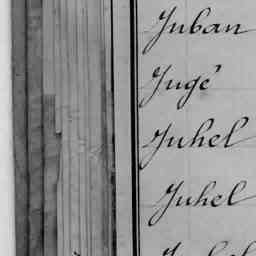 Juban
Jugé
Juhel
Juhel